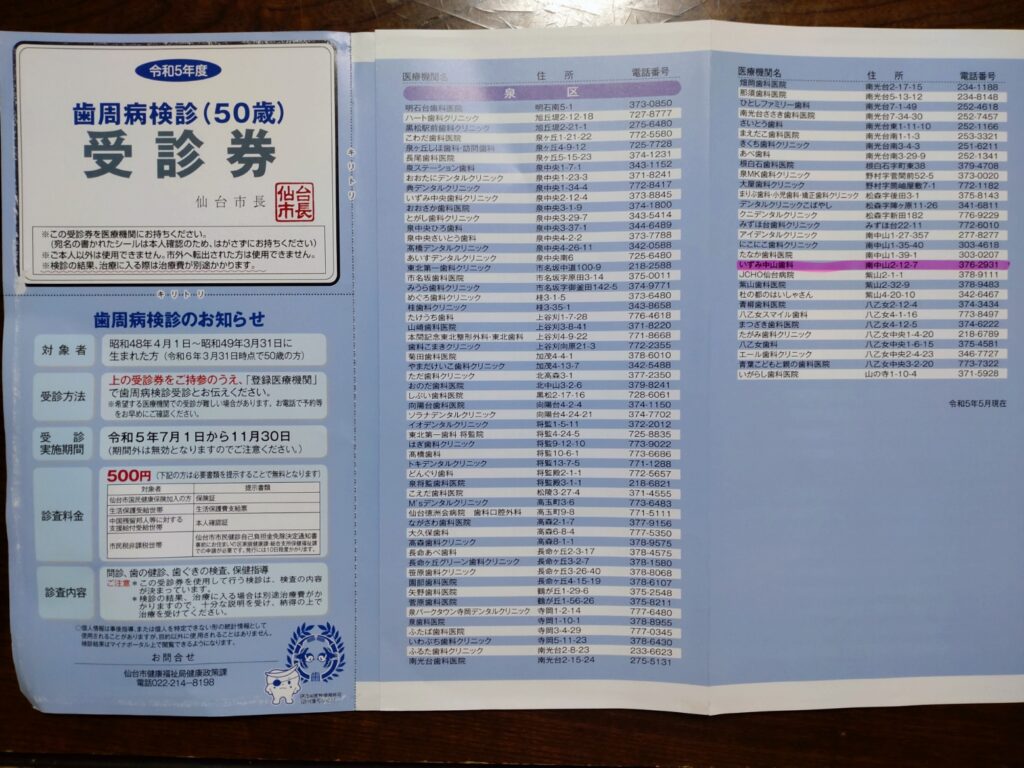 令和5年度
歯周病検診(50歳)
受診券
仙台市長
仙台市長
※この受診券を医療機関にお持ちください。
(宛名の書かれたシールは本人確認のため、はがさずにお持ちください)
※ご本人以外は使用できません。市外へ転出された方は使用できません。
※検診の結果、治療に入る際は治療費が別途かかります。
キリトリ
キリトリ
歯周病検診のお知らせ
対象者
昭和48年4月1日~昭和49年3月31日に
生まれた方(令和6年3月31日時点で50歳の方)
受診方法
上の受診券をご持参のうえ、「登録医療機関」
で歯周病検診受診とお伝えください。
※希望する医療機関での受診が難しい場合があります。お電話で予約等
をお早めにご確認ください。
受診
実施期間
令和5年7月1日から11月30日
(期間外は無効となりますのでご注意ください。)
診査料金
500円(下記の方は必要書類を提示することで無料となります)
対象者 提示書類
仙台市国民健康保険加入の方 保険証
生活保護受給世帯 生活保護費支給票
中国残留邦人等に対する
支援給付受給世帯 本人確認証
市民税非課税世帯
仙台市市民健診自己負担金免除決定通知書
診査内容
問診、歯の健診、歯ぐきの検査、保健指導
ご注意 *この受診券を使用して行う検診は、検査の内容
が決まっています。
*検診の結果、治療に入る場合は別途治療費がか
かりますので、十分な説明を受け、納得の上で
治療を受けてください。
○個人情報は事後指導、または個人を特定できない形の統計情報として
使用されることがありますが、目的以外に使用されることはありません。
検診結果はマイナポータル上で閲覧できるようになります。
お問合せ
仙台市健康福祉局健康政策課
電話022-214-8198
歯
医療機関名 住所 電話番号
泉区
明石台歯科医院 明石南5-1 373-0850
ハート歯科クリニック 旭丘堤2-12-18 727-8777
黒松駅前歯科クリニック 旭丘堤2-21-1 275-6480
こわだ歯科医院 泉ヶ丘1-21-22 772-5580
泉ヶ丘しば歯科・訪問歯科 泉ヶ丘4-9-12 725-7728
長尾歯科医院 泉ヶ丘5-15-23 374-1231
泉ステーション歯科 泉中央1-7-1 343-1152
おおたにデンタルクリニック 泉中央1-23-3 371-8241
典デンタルクリニック 泉中央1-34-4 772-8417
いずみ中央歯科クリニック 泉中央2-12-4 373-8845
おおさか歯科医院 泉中央3-1-9 374-1800
とがし歯科医院 泉中央3-29-7 343-5414
泉中央ひろ歯科 泉中央3-37-1 344-6489
泉中央さいとう歯科 泉中央4-2-2 373-7788
高橋デンタルクリニック 泉中央4-26-11 342-0588
あいすデンタルクリニック 泉中央南6 725-6480
東北第一歯科クリニック 市名坂中道100-9 218-2588
市名坂歯科医院 市名坂字原田3-14 375-0011
みうら歯科クリニック 市名坂字御釜田142-5 374-9771
めぐろ歯科クリニック 桂3-1-5 373-6480
桂歯科クリニック 桂3-35-1 343-8658
たけうち歯科 上谷刈1-7-28 776-4618
山崎歯科医院 上谷刈3-8-41 371-8220
本間記念東北整形外科・東北歯科 上谷刈4-9-22 371-8668
歯科こまきクリニック 上谷刈向原21-3 772-2355
菊田歯科医院 加茂4-4-1 378-6010
やまだけいこ歯科クリニック 加茂4-13-7 342-5488
ただ歯科クリニック 北高森3-1 377-2350
おのだ歯科医院 北中山3-2-6 379-8241
しぶい歯科医院 黒松2-17-16 728-6061
向陽台歯科医院 向陽台4-2-4 374-1150
ソラナデンタルクリニック 向陽台4-24-21 374-7702
イオデンタルクリニック 将監1-5-11 372-2012
東北第一歯科 将監院 将監4-24-5 725-8835
はぎ歯科クリニック 将監9-12-10 773-9022
高橋歯科 将監10-6-1 773-6686
トキデンタルクリニック 将監13-7-5 771-1288
どんぐり歯科 将監殿2-1-1 772-5657
泉将監歯科医院 将監殿3-1-1 218-6821
こえだ歯科医院 松陵3-27-4 371-4555
M'sデンタルクリニック 高玉町3-6 773-6483
仙台徳洲会病院 歯科口腔外科 高玉町9-8 771-5111
ながさわ歯科医院 高森2-1-7 377-9156
大久保歯科 高森6-8-4 777-5350
高森歯科クリニック 高森8-1-1 378-9575
長命あべ歯科 長命ヶ丘2-3-17 378-4575
長命ヶ丘グリーン歯科クリニック 長命ヶ丘2-7-7 378-1580
笹原歯科医院 長命ヶ丘3-26-40 378-8068
園部歯科医院 長命ヶ丘4-15-19 378-6107
矢野歯科医院 鶴が丘1-29-6 375-2548
菅原歯科医院 鶴が丘1-56-26 375-8211
泉パークタウン寺岡デンタルクリニック 寺岡1-2-14 777-6480
泉歯科医院 寺岡1-10-1 378-8955
ふたば歯科医院 寺岡3-4-29 777-0345
いわぶち歯科クリニック 寺岡5-11-23 378-6430
ふるた歯科クリニック 南光台2-8-23 233-6623
南光台歯科医院 南光台2-15-24 275-5131
医療機関名 住所 電話番号
畑岡歯科医院 南光台2-17-15 234-1188
那須歯科医院 南光台5-13-12 234-8148
ひとしファミリー歯科 南光台7-1-49 252-4618
南光台ささき歯科医院 南光台7-34-30 252-7457
さいとう歯科 南光台東1-11-10 252-1166
まえだこ歯科医院 南光台南1-1-3 253-3321
きくち歯科クリニック 南光台南3-4-3 251-6211
あべ歯科 南光台南3-29-9 252-1341
根白石歯科医院 根白石字町東38 379-4708
泉MK歯科クリニック 野村字菅間前52-5 373-0020
大屋歯科クリニック 野村字筒岫屋敷7-1 772-1182
まりぶ歯科・小児歯科・矯正歯科クリニック 松森字後田3-1 375-8143
デンタルクリニックこばやし 松森字陣ヶ原11-26 341-6811
クニデンタルクリニック 松森字新田182 776-9229
みずほ台歯科医院 みずほ台22-11 772-6010
アイデンタルクリニック 南中山1-27-357 277-8277
にこにこ歯科クリニック 南中山1-35-40 303-4618
たなか歯科医院 南中山1-39-1 303-0207
いずみ中山歯科 南中山2-12-7 376-2931
JCHO仙台病院 紫山2-1-1 378-9111
紫山歯科医院 紫山2-32-9 378-9483
杜の都のはいしゃさん 紫山4-20-10 342-6467
八乙女歯科医院 八乙女2-12-4 374-3434
八乙女スマイル歯科 八乙女4-1-16 773-8497
まつざき歯科医院 八乙女4-12-5 374-6222
たがみ歯科クリニック 八乙女中央1-4-20 218-6789
八乙女歯科 八乙女中央1-6-15 375-4581
エール歯科クリニック 八乙女中央2-4-23 346-7727
青葉こどもと親の歯科医院 八乙女中央3-2-20 773-7322
いがらし歯科医院 山の寺1-10-4 371-5928
令和5年5月現在